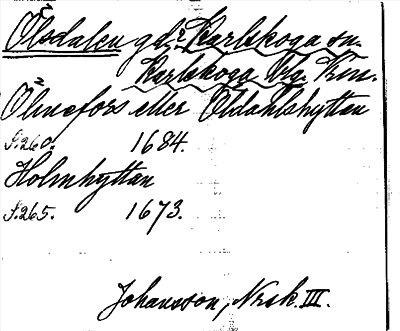 Ölsdalen gd? Karlskoga sn.
Karlskoga bg. Krm.
Ölmefors eller Öldahlshyttan
S.260. 1684.
Holmhyttan
S.265. 1673.
Johansson, Nrsk. III.